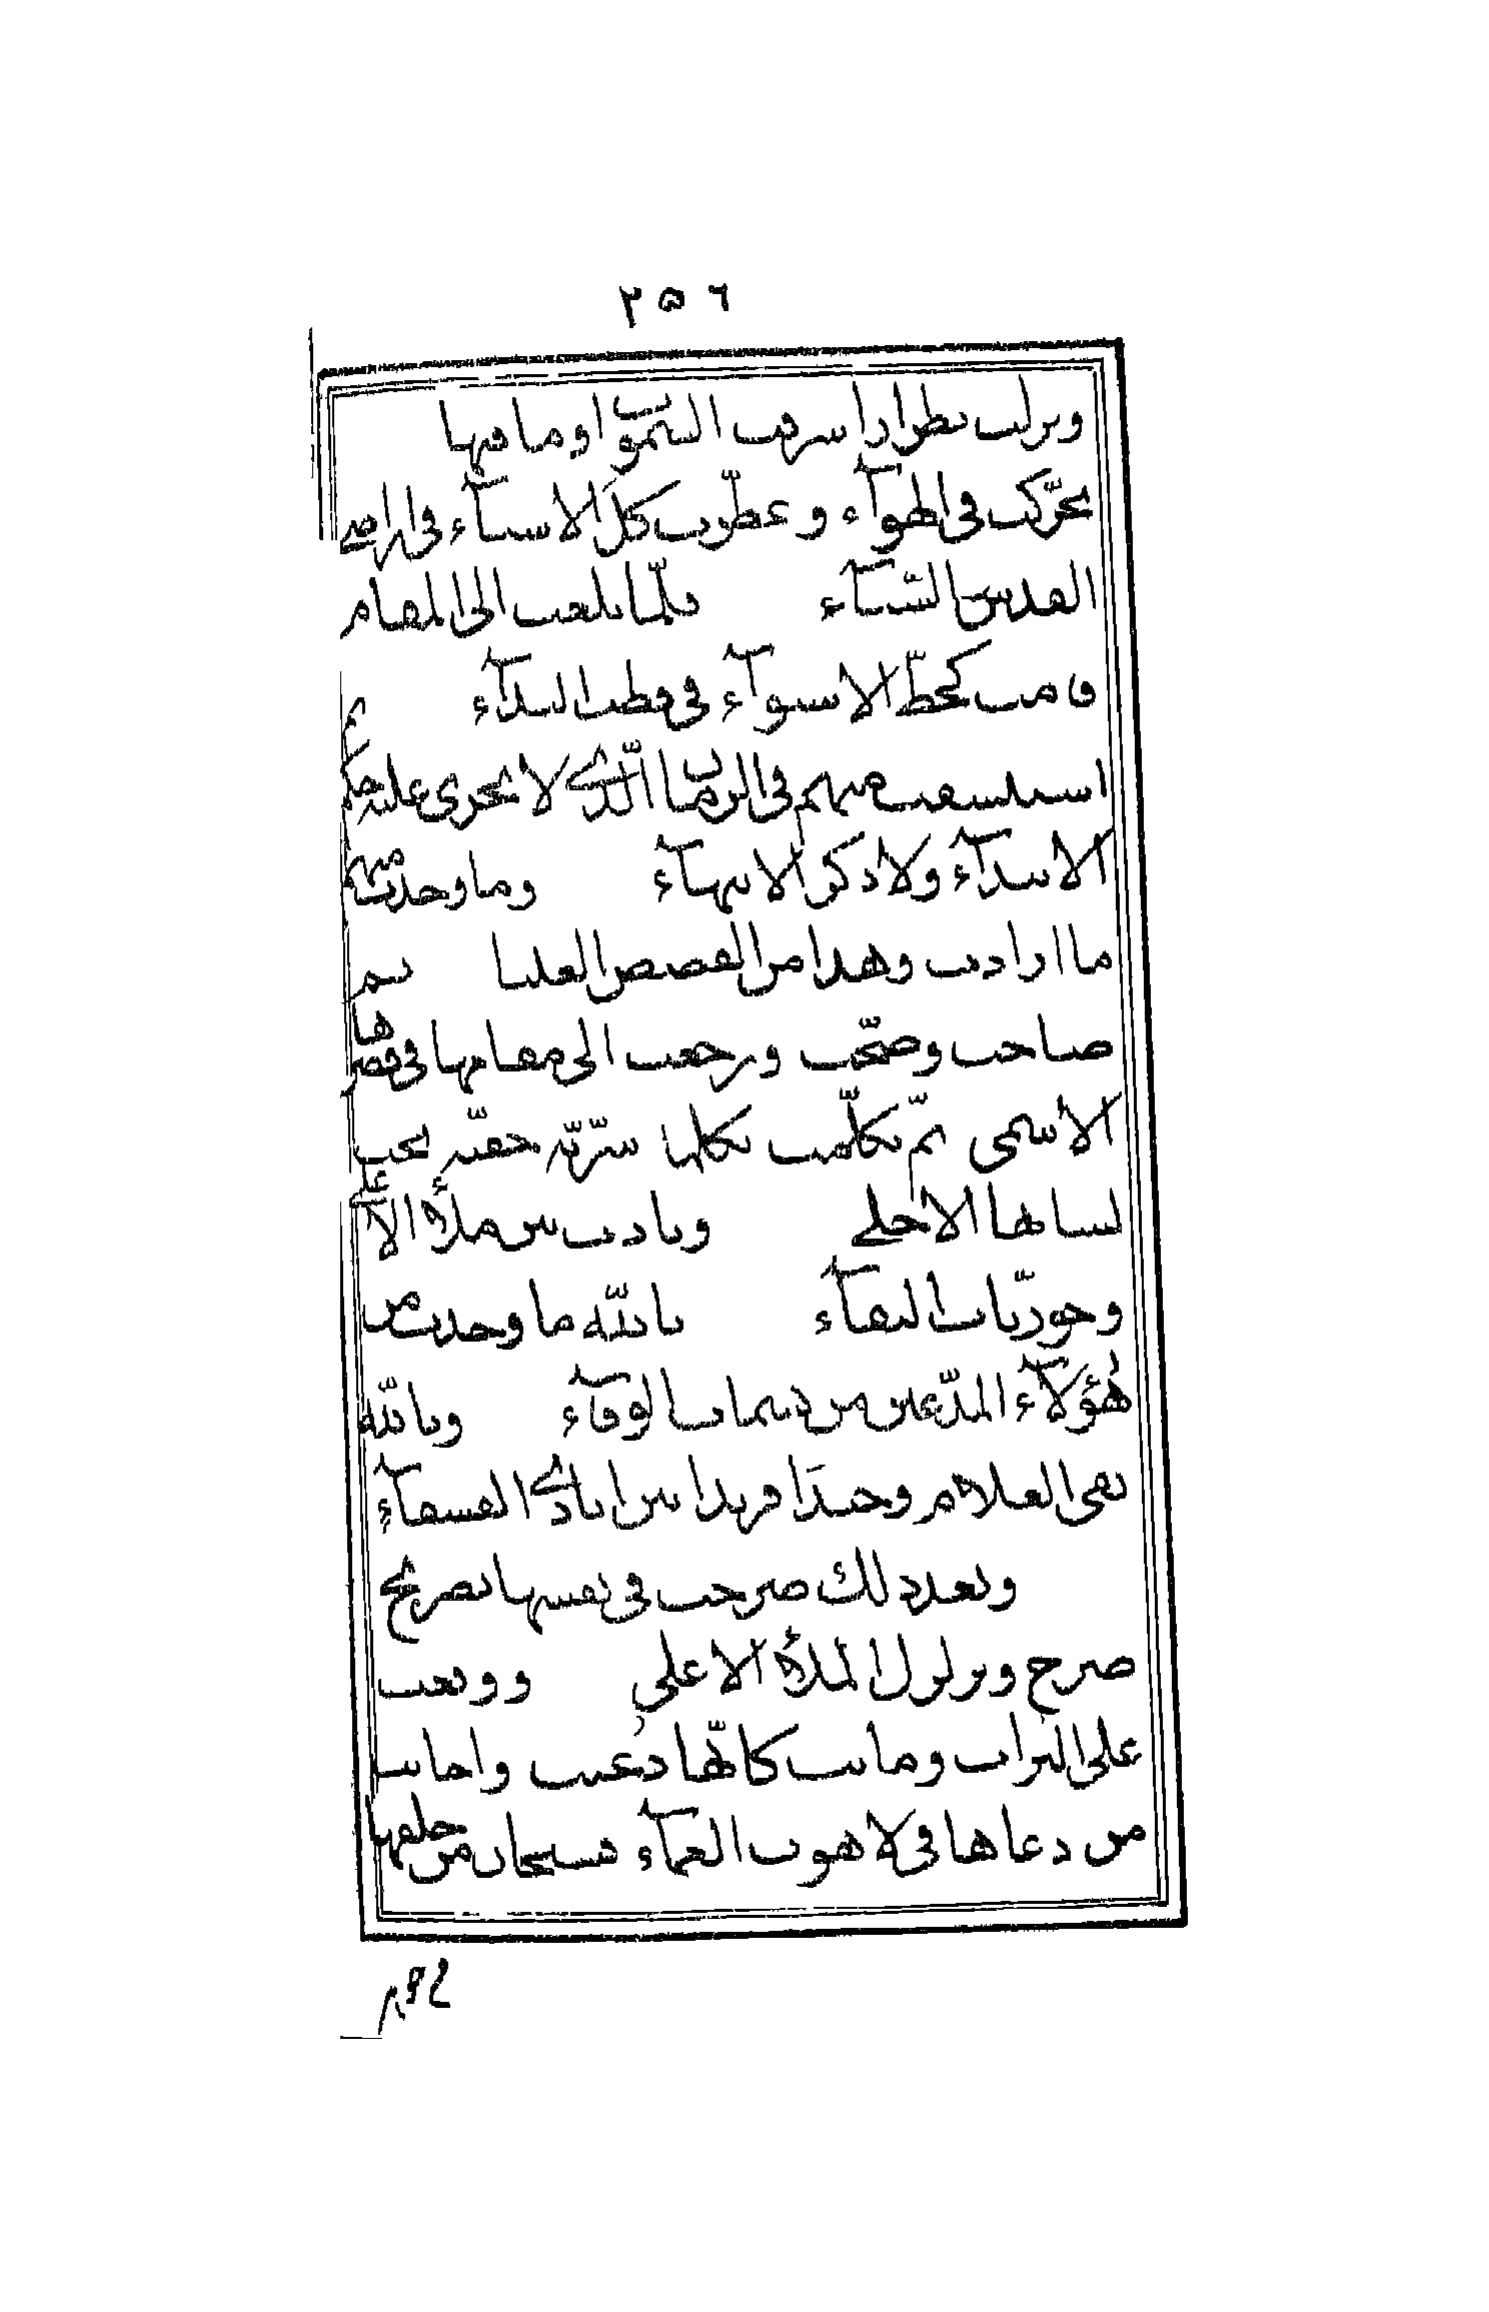 ٢٥٦
ونزلت بطراز اشرقت السموات وما فيها
تحركت في الهوآء وعطرت كل الاشيآء في اراضي
القدس والسنآء فلما بلغت الى المقام
قامت كخط الاستوآء في قطب البدآء ثم
استنشقت منهم في الزمان الذي لا يجري عليه حكم
الابتدآء ولا ذكر الانتهآء وما وجدت منهم
ما ارادت وهذا من القصص العليا ثم
صاحت وضجت ورجعت الى مقامها في قصرها
الاسمى ثم تكلمت بكلمة سرية خفية تحت
لسانها الاحلى ونادت بين ملأ الاعلى
وحوريات البقآء تالله ما وجدت من
هؤلآء المدعين من نسمات الوفآء وتالله
بقي الغلام وحيدا فريدا بين ايادي الفسقآء
وبعد ذلك صرخت في نفسها بصريخ
صرخ وتزلزل الملأ الاعلى ووقعت
على التراب وماتت كانها دعيت واجابت
من دعاها في لاهوت العمآء فسبحان من خلقها